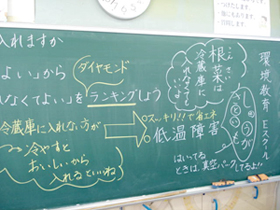 環境教育
根菜は
冷蔵庫に
入れなくても
いい
しょうが
さといも
入れますか
ダイヤモンド
よい」から
れなくてよい」を
ランキングしよう
冷蔵庫に入れない方が
ロス〜キリ!!で省エネ
低温障害
冷やすと
おいしいから
入れるといいね
はいってる
ときは、真空パックしてるよ